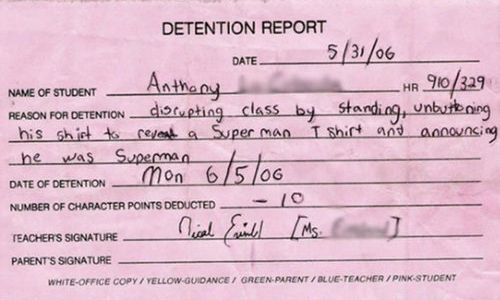 DETENTION REPORT
DATE 5/31/06
NAME OF STUDENT Anthony HR 910/329
REASON FOR DETENTION disrupting class by standing, unbuttoning
his shirt to reveal a Superman T shirt and announcing
he was Superman
DATE OF DETENTION Mon 6/5/06
NUMBER OF CHARACTER POINTS DEDUCTED - 10
TEACHER'S SIGNATURE [Ms. ]
PARENT'S SIGNATURE
WHITE-OFFICE COPY / YELLOW-GUIDANCE / GREEN-PARENT / BLUE-TEACHER / PINK-STUDENT